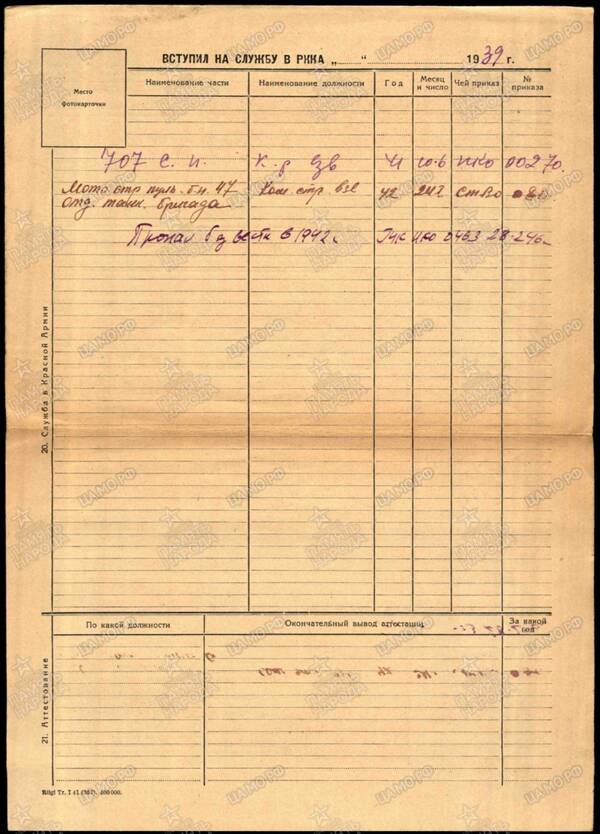 ВСТУПИЛ НА СЛУЖБУ В РККА „ “ 1939 г.
Место фотокарточки
Наименование части Наименование должности Год Месяц и число Чей приказ № приказа
707 с. п. к-р Взв 41 10.6 НКО 00270
Мото стр пульб-н. 47 Ком. стр взв 42 СТВО
отд. танк. бригада
Пропал без вести в 1942 г. ГУК НКО 0463 28.2.46г.
20. Служба в Красной Армии
По какой должности Окончательный вывод аттестации За какой год
21. Аттестование
Rīlgi Tr. I 41 (367). 400 000.
ЦАМО.РФ
ПАМЯТЬ НАРОДА